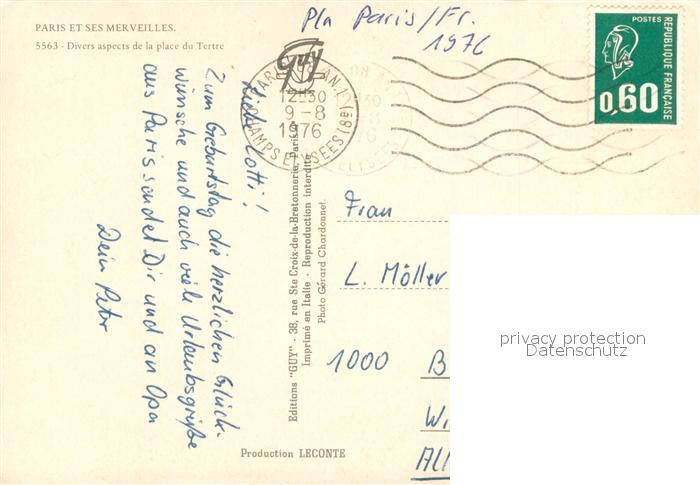 PARIS ET SES MERVEILLES.
5563 - Divers aspects de la place du Tertre
Pla Paris/Fr.
1976
Guy
12H30
9-8
1976
CHAMPS ELYSEES (8e)
POSTES
REPUBLIQUE FRANÇAISE
0,60
Liebe Lotti!
Zum Geburtstag die herzlichen Glück-
wünsche und auch viele Urlaubsgrüße
aus Paris sendet Dir und an Opa
Dein Peter
Editions "GUY" - 38, rue Ste Croix-de-la-Bretonnerie, Paris
Imprimé en Italie - Reproduction interdite
Photo Gérard Chardonnet.
Frau
L. Möller
1000 B
Wi
All
Production LECONTE
privacy protection
Datenschutz